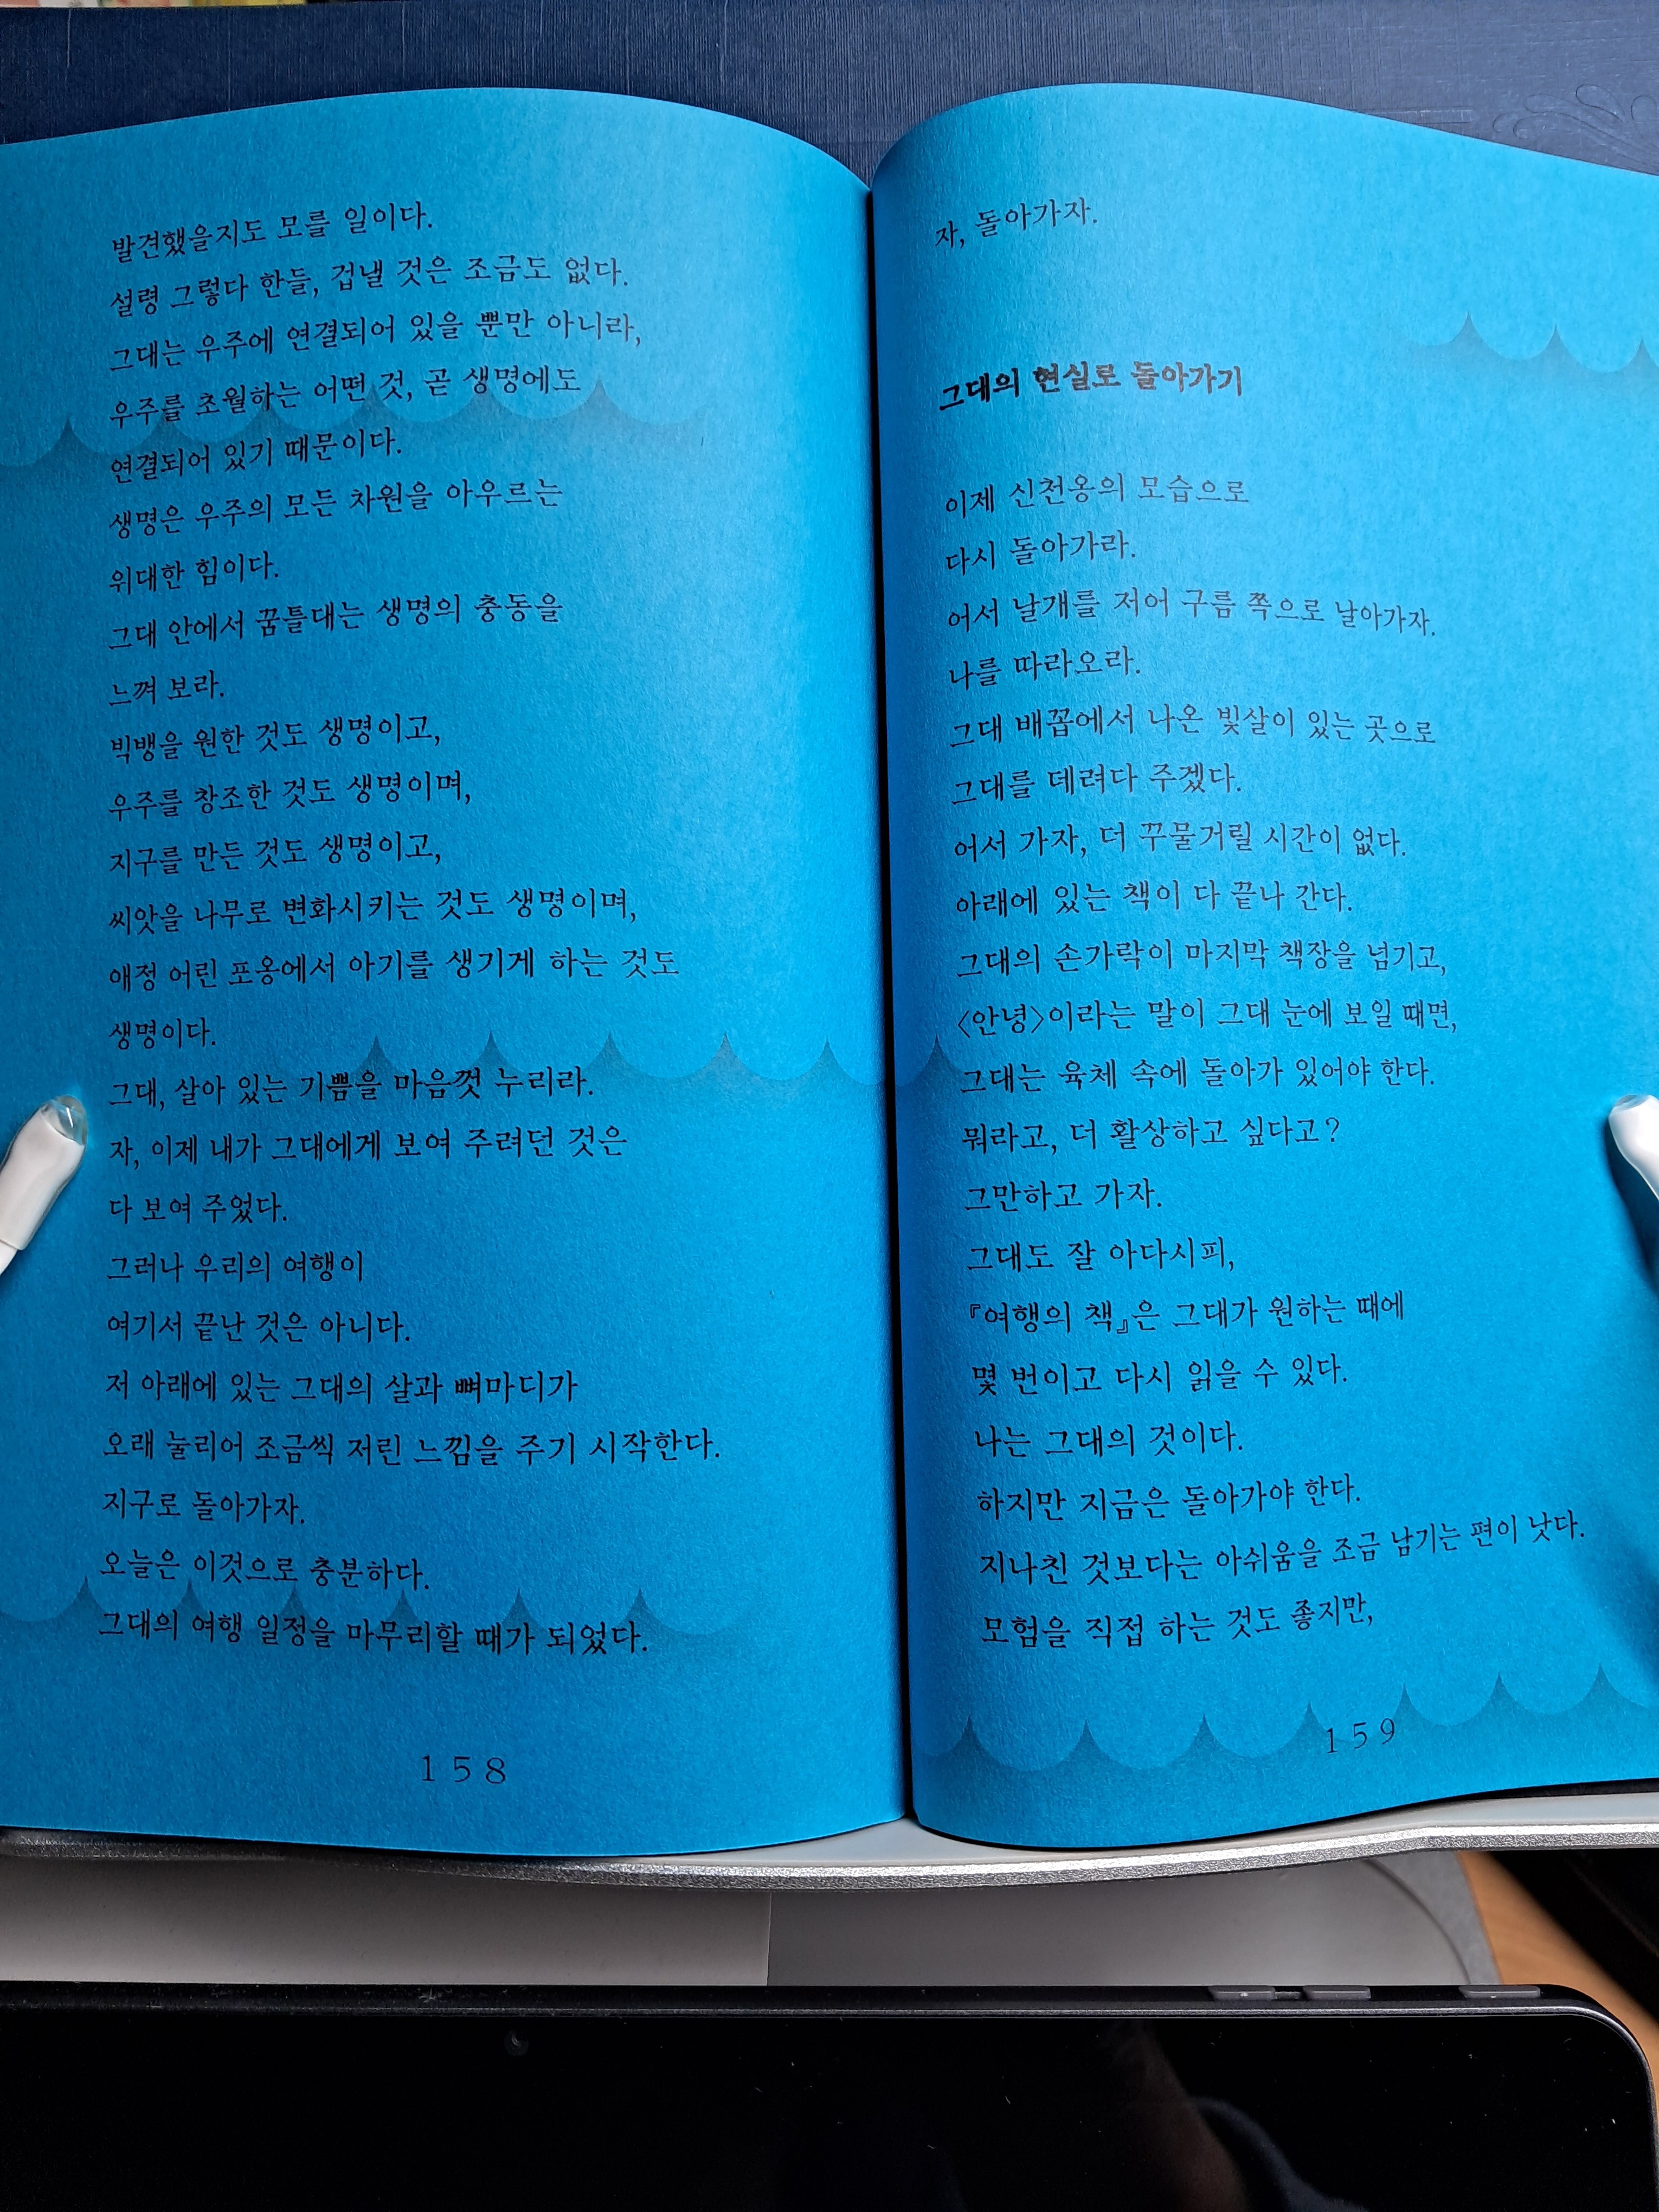 발견했을지도 모를 일이다.
설령 그렇다 한들, 겁낼 것은 조금도 없다.
그대는 우주에 연결되어 있을 뿐만 아니라,
우주를 초월하는 어떤 것, 곧 생명에도
연결되어 있기 때문이다.
생명은 우주의 모든 차원을 아우르는
위대한 힘이다.
그대 안에서 꿈틀대는 생명의 충동을
느껴 보라.
빅뱅을 원한 것도 생명이고,
우주를 창조한 것도 생명이며,
지구를 만든 것도 생명이고,
씨앗을 나무로 변화시키는 것도 생명이며,
애정 어린 포옹에서 아기를 생기게 하는 것도
생명이다.
그대, 살아 있는 기쁨을 마음껏 누리라.
자, 이제 내가 그대에게 보여 주려던 것은
다 보여 주었다.
그러나 우리의 여행이
여기서 끝난 것은 아니다.
저 아래에 있는 그대의 살과 뼈마디가
오래 눌리어 조금씩 저린 느낌을 주기 시작한다.
지구로 돌아가자.
오늘은 이것으로 충분하다.
그대의 여행 일정을 마무리할 때가 되었다.
158
자, 돌아가자.
그대의 현실로 돌아가기
이제 신천옹의 모습으로
다시 돌아가라.
어서 날개를 저어 구름 쪽으로 날아가자.
나를 따라오라.
그대 배꼽에서 나온 빛살이 있는 곳으로
그대를 데려다 주겠다.
어서 가자, 더 꾸물거릴 시간이 없다.
아래에 있는 책이 다 끝나 간다.
그대의 손가락이 마지막 책장을 넘기고,
〈안녕〉이라는 말이 그대 눈에 보일 때면,
그대는 육체 속에 돌아가 있어야 한다.
뭐라고, 더 활상하고 싶다고?
그만하고 가자.
그대도 잘 아다시피,
『여행의 책』은 그대가 원하는 때에
몇 번이고 다시 읽을 수 있다.
나는 그대의 것이다.
하지만 지금은 돌아가야 한다.
지나친 것보다는 아쉬움을 조금 남기는 편이 낫다.
모험을 직접 하는 것도 좋지만,
159